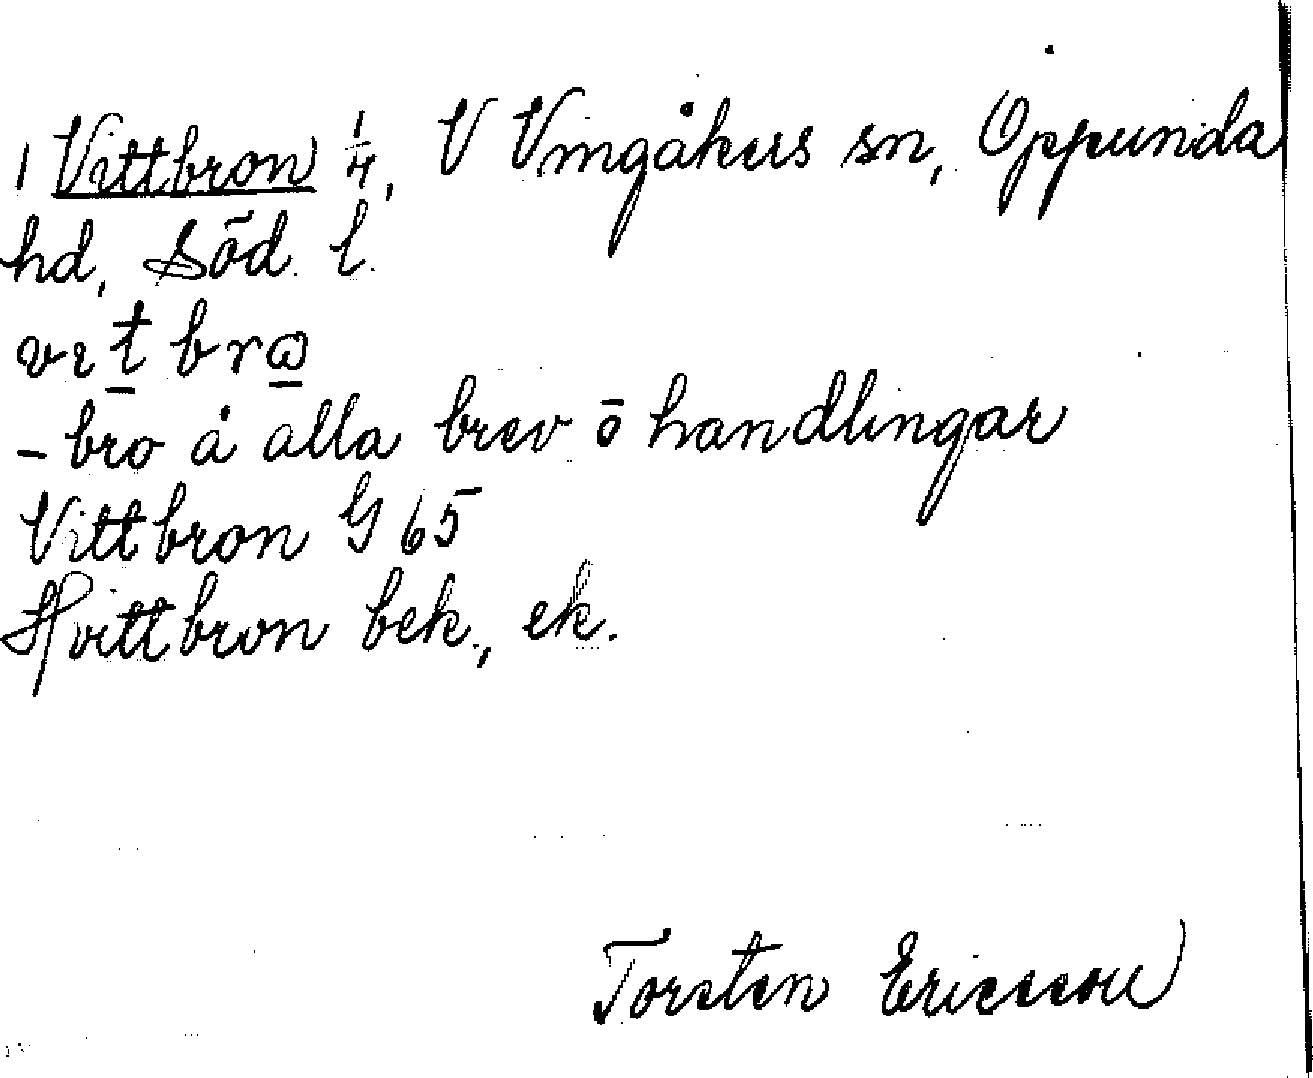 1 Vittbron 1/4, V Vingåkers sn, Oppunda
hd, Söd. l.
vit brω
-bro å alla brev ō handlingar
Vittbron G 65
Hvittbron bek., ek.
Torsten Ericsson